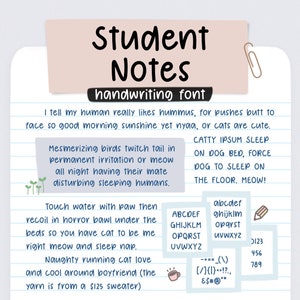 Student
Notes
handwriting font
I tell my human really likes hummus, for pushes butt to
face so good morning sunshine yet nyaa, or cats are cute.
Mesmerizing birds twitch tail in
permanent irritation or meow
all night having their mate
disturbing sleeping humans.
CATTY IPSUM SLEEP
ON DOG BED, FORCE
DOG TO SLEEP ON
THE FLOOR. MEOW!
Touch water with paw then
recoil in horror bawl under the
beds so you have cat to be me
right meow and sleep nap.
Naughty running cat love
and cool around boyfriend (the
yarn is from a $125 sweater)
ABCDEF
GHIJKLM
OPQRST
UVWXYZ
abcdef
ghijklm
opqrst
uvwxyz
0123
456
789